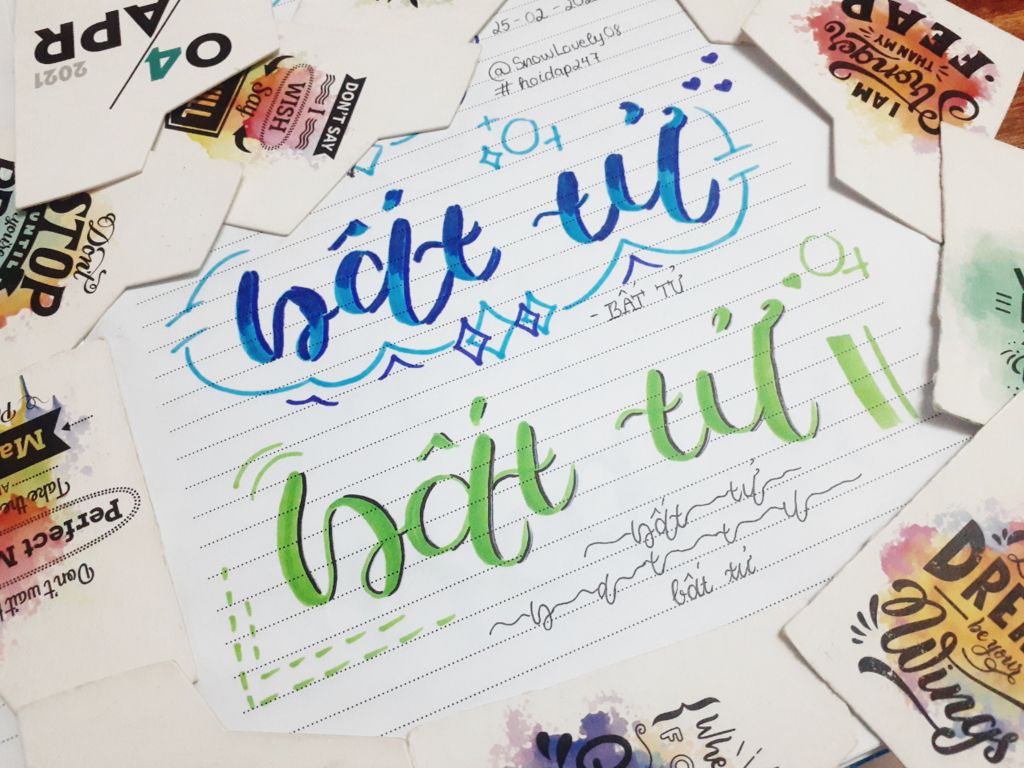 25-02-202
@SnowLovely08
#hoidap247
bất tử
- BẤT TỬ
bất tử
bất tử
b a t t ư
bất tử
04
APR
2021
DON'T SAY
I WISH
Say
I AM
Stronger
THAN MY
FEAR
Don't
STOP
UNTIL
you're
Ma
Take the
Perfect M
Don't wait
DRE
be your
Wings